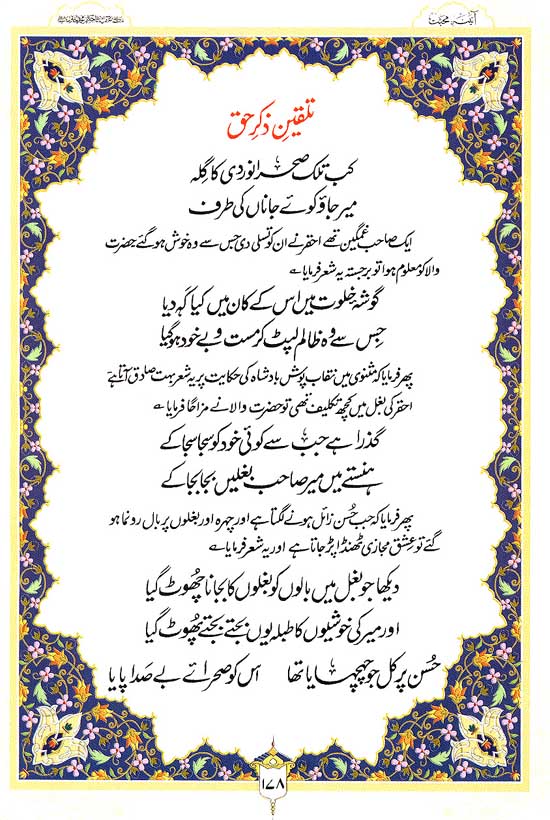 آئینہ محبت
تلقینِ ذکرِ حق
کب تلک صحرا نوردی کا گِلہ
میر جاؤ کوئے جاناں کی طرف
ایک صاحب غمگین تھے احقر نے ان کو تسلی دی جس سے وہ خوش ہوگئے حضرت
والا کو معلوم ہوا تو برجستہ یہ شعر فرمایا ؎
گوشۂ خلوت میں اس کے کان میں کیا کہہ دیا
جِس سے وہ ظالم لپٹ کر مست و بے خود ہوگیا
پھر فرمایا کہ مثنوی میں نقاب پوش بادشاہ کی حکایت پر یہ شعر بہت صادق آتا ہے
احقر کی بغل میں کچھ تکلیف تھی تو حضرت والا نے مزاحًا فرمایا ؎
گذرا ہے جب سے کوئی خود کو سجا سجا کے
ہنستے ہیں میر صاحب بغلیں بجا بجا کے
پھر فرمایا کہ جب حُسن زائل ہونے لگتا ہے اور چہرہ اور بغلوں پر بال رونما ہو
گئے تو عِشق مجازی ٹھنڈا پڑ جاتا ہے اور یہ شعر فرمایا ؎
دیکھا جو بغل میں بالوں کو بغلوں کا بجانا چھوٹ گیا
اور میر کی خوشیوں کا طبلہ یوں بجتے بجتے پھوٹ گیا
حُسن پر کل جو چہچہایا تھا اس کو صحرائے بے صَدا پایا
۱۷۸